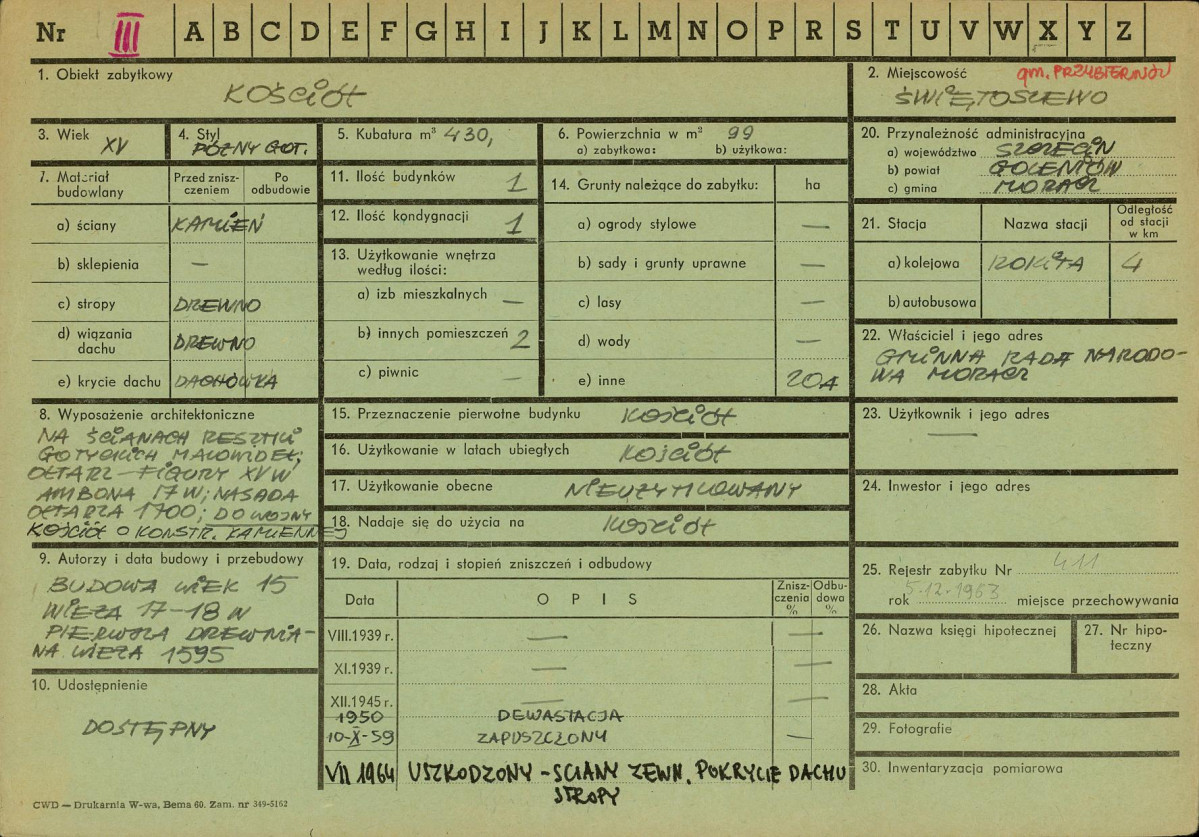 Nr III A B C D E F G H I J K L M N O P R S T U V W X Y Z
1. Obiekt zabytkowy
KOŚCIÓŁ
2. Miejscowość gm. PRZYBIERNÓW
ŚWIĘTOSZEWO
3. Wiek
XV
4. Styl
PÓŹNY GOT.
5. Kubatura m³ 430,
6. Powierzchnia w m² 99
a) zabytkowa: b) użytkowa:
7. Materiał budowlany
Przed zniszczeniem
Po odbudowie
a) ściany KAMIEŃ
b) sklepienia —
c) stropy DREWNO
d) wiązania dachu DREWNO
e) krycie dachu DACHÓWKA
8. Wyposażenie architektoniczne
NA ŚCIANACH RESZTKI
GOTYCKICH MALOWIDEŁ;
OŁTARZ – FIGURY XV W
AMBONA 17 W; NASADA
OŁTARZA 1700; DO WOJNY
KOŚCIÓŁ O KONSTR. KAMIENNEJ
9. Autorzy i data budowy i przebudowy
BUDOWA WIEK 15
WIEŻA 17–18 W
PIERWSZA DREWNIA-
NA WIEŻA 1595
10. Udostępnienie
DOSTĘPNY
11. Ilość budynków 1
12. Ilość kondygnacji 1
13. Użytkowanie wnętrza
według ilości:
a) izb mieszkalnych —
b) innych pomieszczeń 2
c) piwnic —
14. Grunty należące do zabytku: ha
a) ogrody stylowe —
b) sady i grunty uprawne —
c) lasy —
d) wody —
e) inne 20A
15. Przeznaczenie pierwotne budynku KOŚCIÓŁ
16. Użytkowanie w latach ubiegłych KOŚCIÓŁ
17. Użytkowanie obecne NIEUŻYTKOWANY
18. Nadaje się do użycia na KOŚCIÓŁ
19. Data, rodzaj i stopień zniszczeń i odbudowy
Data
O P I S
Zniszczenia %
Odbudowa %
VIII.1939 r. — —
XI.1939 r. — —
XII.1945 r. — —
1950 DEWASTACJA
10-X-59 ZAPUSZCZONY —
VII 1964 USZKODZONY – SCIANY ZEWN. POKRYCIE DACHU
STROPY
20. Przynależność administracyjna
a) województwo SZCZECIN
b) powiat GOLENIÓW
c) gmina MORACZ
21. Stacja
Nazwa stacji
Odległość od stacji w km
a) kolejowa ROKITA 4
b) autobusowa
22. Właściciel i jego adres
GMINNA RADA NARODO-
WA MORACZ
23. Użytkownik i jego adres
—
24. Inwestor i jego adres
25. Rejestr zabytku Nr 411
rok 5.12.1963 miejsce przechowywania
26. Nazwa księgi hipotecznej
27. Nr hipoteczny
28. Akta
29. Fotografie
30. Inwentaryzacja pomiarowa
CWD — Drukarnia W-wa, Bema 60. Zam. nr 349-5162